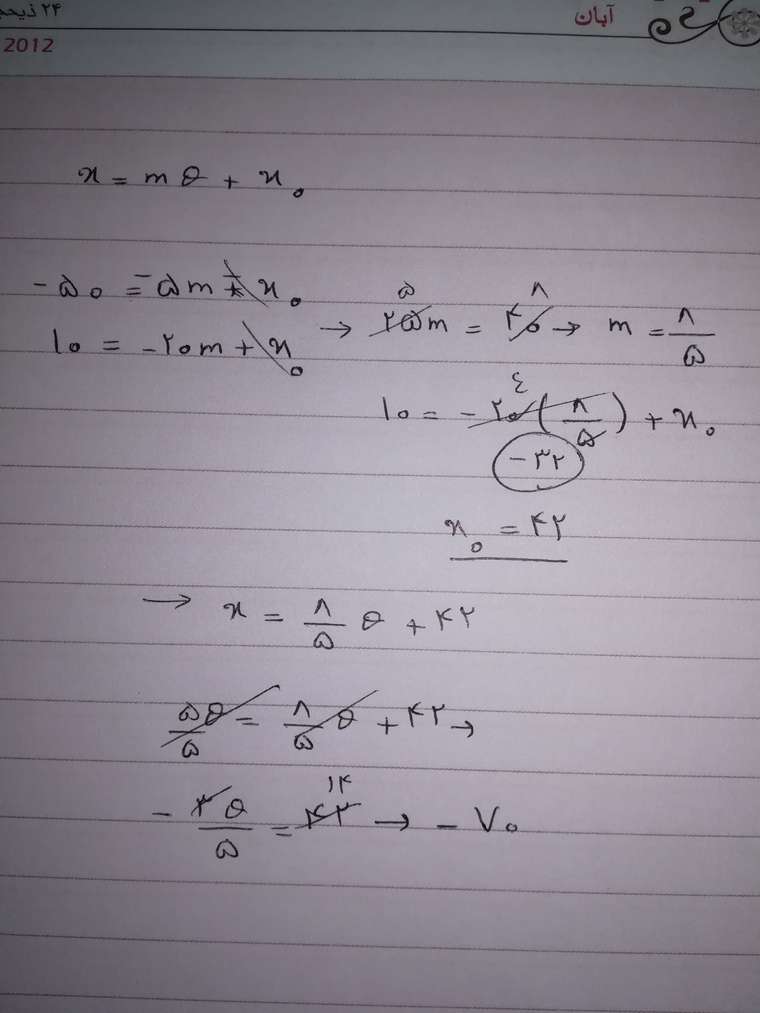 ۲۴ ذیحج
آبان
2012
x = mθ + x₀
-۵۰ = -۵m + x₀
۱۰ = -۲۰m + x₀
→ ۲۵m = ۴۰ → m = ۸/۵
۵ ۸
۱۰ = -۲۰(۸/۵) + x₀
۴
-۳۲
x₀ = ۴۲
→ x = ۸/۵ θ + ۴۲
۵θ/۵ = ۸/۵ θ + ۴۲ →
۱۴
-۳θ/۵ = ۴۲ → -۷۰